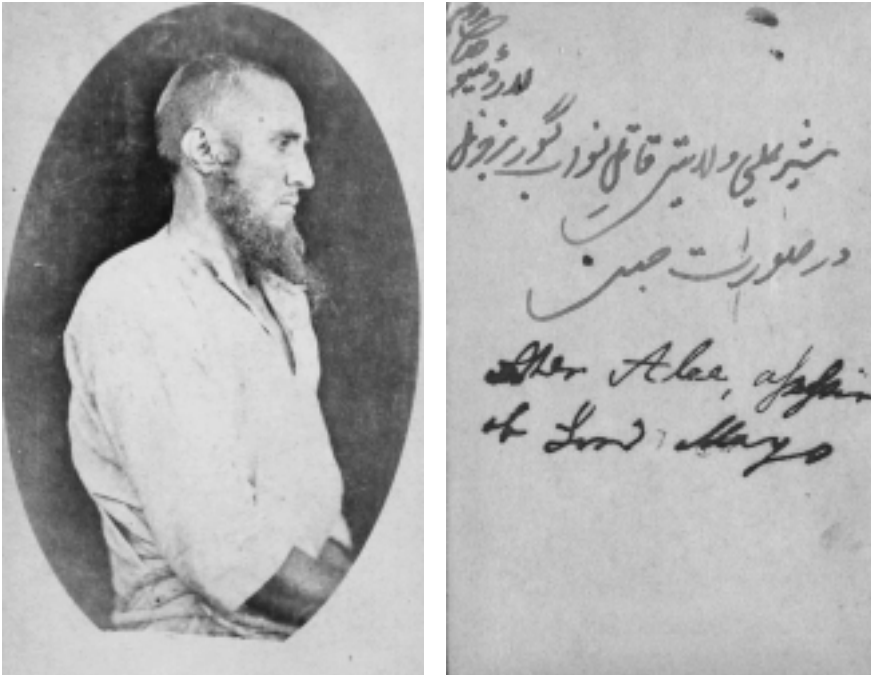 لارڈ میو
شیر علی ولایتی قاتل نواب گورنر جنرل
در
Sher Alee, assassin
of Lord Mayo